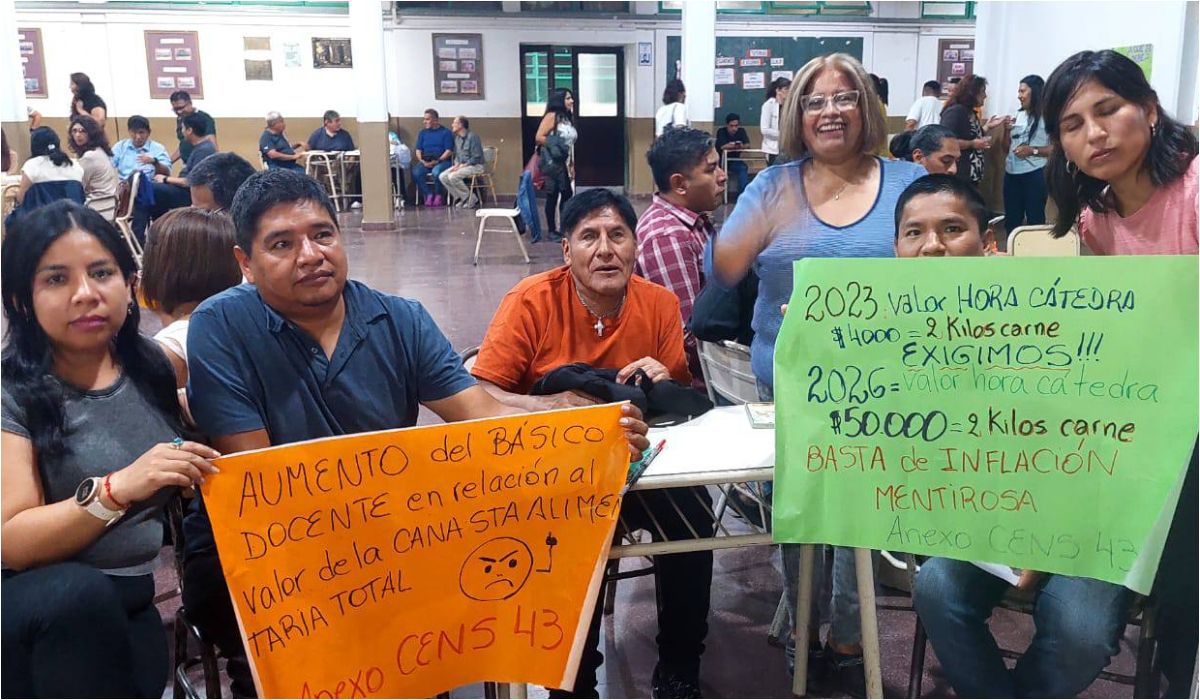 AUMENTO del BÁSICO
DOCENTE en relación al
valor de la CANASTA ALIMEN
TARIA TOTAL
Anexo CENS 43
2023: valor HORA CÁTEDRA
$4000 = 2 Kilos carne
EXIGIMOS!!!
2026 = valor hora cátedra
$50.000 = 2 Kilos carne
BASTA de INFLACIÓN
MENTIROSA
Anexo CENS 43